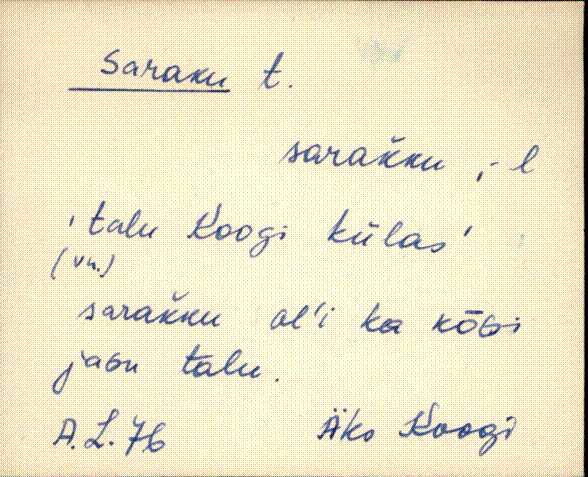 Saraku t.
sarakku, -l
'talu Koogi külas'
(vn.)
sarakku ol'i ka kõGi
jaon talu.
A.L. 76 Äks Koogi